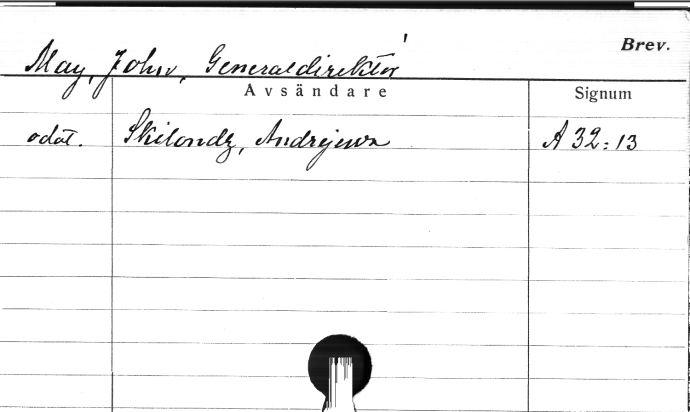 Brev.
May, John, Generaldirektör
Avsändare Signum
odat. Skilondz, Andrejewa A 32:13